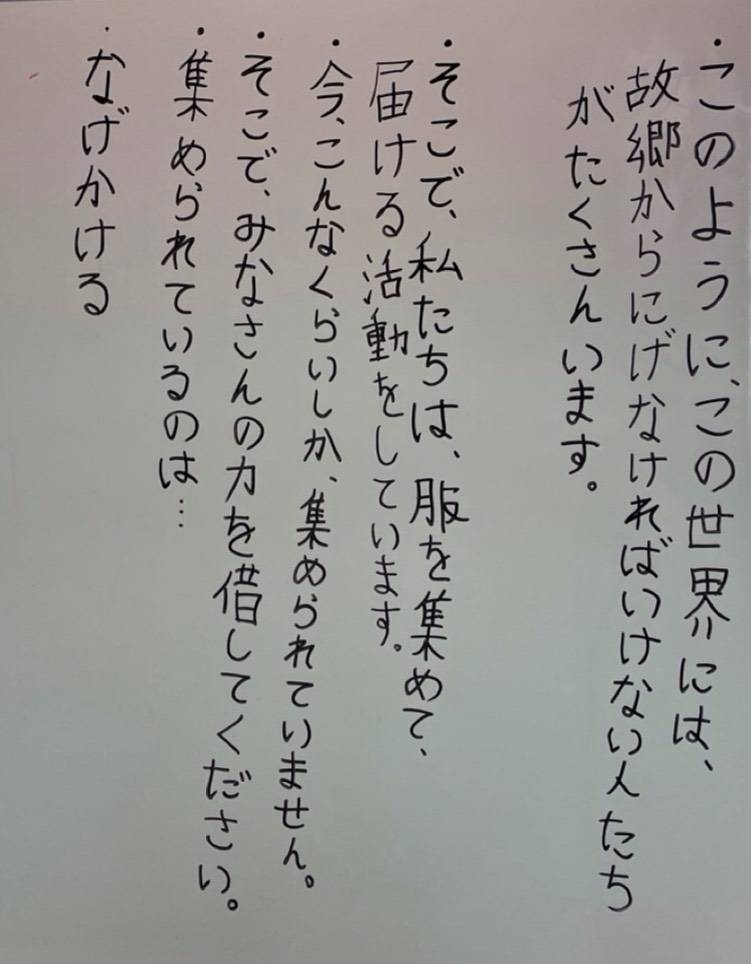 ・このように、この世界には、
故郷からにげなければいけない人たち
がたくさんいます。
・そこで、私たちは、服を集めて、
届ける活動をしています。
・今、こんなくらいしか、集められていません。
・そこで、みなさんの力を借してください。
・集められているのは…
・なげかける